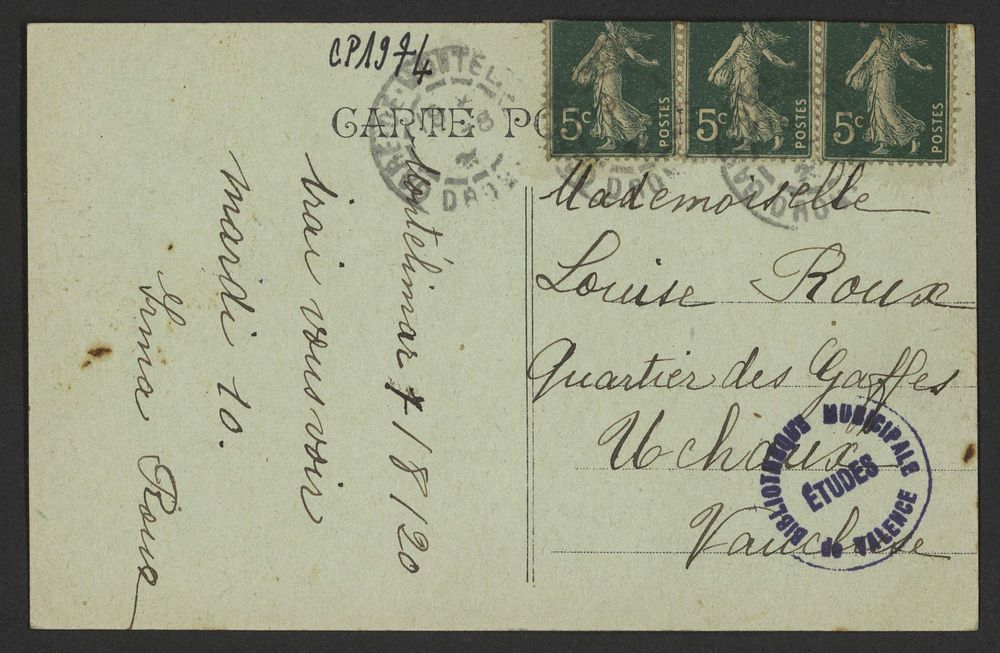 CP1974
CARTE PO
5c POSTES
5c POSTES
5c POSTES
Montélimar 7/8/20
Irai vous voir
mardi 10.
Irma Roux
Mademoiselle
Louise Roux
Quartier des Gaffes
Uchaux
Vaucluse
BIBLIOTHEQUE MUNICIPALE
ÉTUDES
de VALENCE